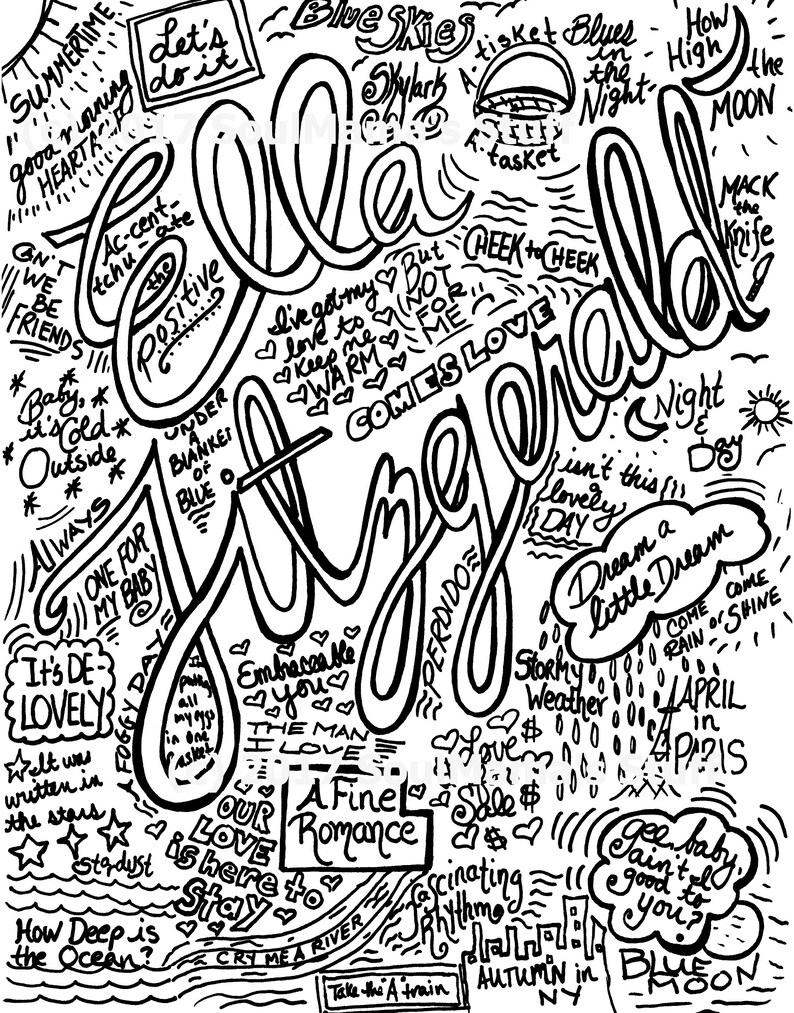 SUMMERTIME
good morning
HEARTACHE
Let's
do it
Blue Skies
Skylark
A-tisket
A-tasket
Blues
in
the
Night
How
High
the
MOON
(c) 2017 SoulMama's Stuff
Ella
Fitzgerald
Ac-cent-
tchu-ate
the
Positive
CAN'T
WE
BE
FRIENDS
I've got my
love to
Keep me
WARM
But
NOT
FOR
ME
CHEEK to CHEEK
MACK
the
Knife
COMES LOVE
Baby,
it's Cold
Outside
UNDER
A
BLANKET
OF
BLUE
Night
&
Day
isn't this
a
lovely
DAY
ALWAYS
ONE FOR
MY BABY
Dream a
little Dream
COME
RAIN or
COME
SHINE
PERDIDO
It's DE-
LOVELY
FOGGY DAY
I'm
putting
all
my eggs
in one
basket
Embraceable
you
THE MAN
I LOVE
Stormy
Weather
APRIL
in
PARIS
Love
for
Sale
(c) 2017 SoulMama's Stuff
It was
written in
the stars
Stardust
OUR
LOVE
is here to
Stay
A Fine
Romance
gee, baby,
ain't I
good to
you?
fascinating
Rhythm
How Deep is
the Ocean?
CRY ME A RIVER
Take the "A" train
AUTUMN in
NY
BLUE
MOON